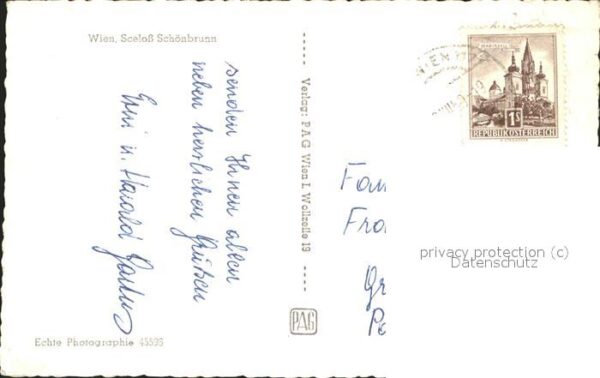 Wien, Sceloß Schönbrunn
senden Ihnen allen
neben herzlichen Grüßen
Erni u. Harald
Echte Photographie 45596
Verlag: PAG Wien I, Wollzeile 19
PAG
WIEN
1S
REPUBLIK ÖSTERREICH
Fam
Fra
Gr
Pe
privacy protection (c)
Datenschutz